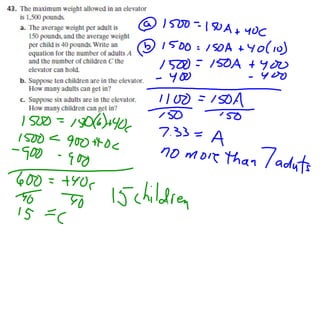 43. The maximum weight allowed in an elevator
is 1,500 pounds.
a. The average weight per adult is
150 pounds, and the average weight
per child is 40 pounds. Write an
equation for the number of adults A
and the number of children C the
elevator can hold.
b. Suppose ten children are in the elevator.
How many adults can get in?
c. Suppose six adults are in the elevator.
How many children can get in?
a 1500 = 150A + 40C
b 1500 = 150A + 40(10)
1500 = 150A + 400
- 400 - 400
1100 = 150A
150 150
7.33 = A
no more than 7 adults
1500 = 150(6)+40c
1500 = 900+40c
-900 -900
600 = +40c
40 40
15 = c
15 children